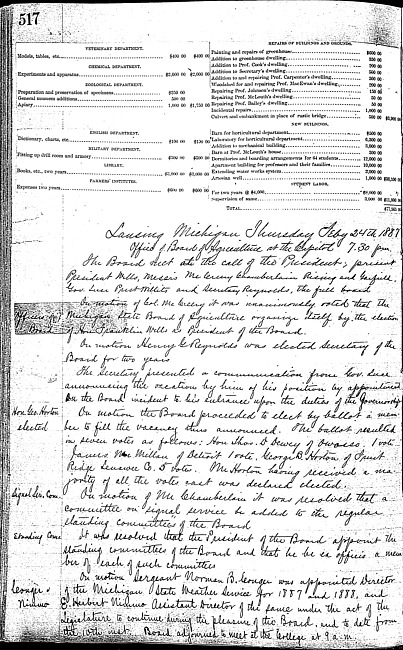 517
VETERINARY DEPARTMENT.
Models, tables, etc. $400 00 $400 00
CHEMICAL DEPARTMENT.
Experiments and apparatus $2,000 00 $2,000 00
ZOOLOGICAL DEPARTMENT.
Preparation and preservation of specimens $250 00
General museum additions 500 00
Apiary 1,000 00 $1,750 00
ENGLISH DEPARTMENT.
Dictionary, charts, etc. $100 00
MILITARY DEPARTMENT.
Fitting up drill room and armory
LIBRARY.
Books, etc., two years
FARMERS' INSTITUTES.
Expenses two years
REPAIRS OF BUILDINGS AND GROUNDS.
Painting and repairs of greenhouse
Addition to greenhouse dwelling
Addition to Prof. Cook's dwelling
Addition to Secretary's dwelling
Addition to and repairing Prof. Carpenter's dwelling
Woodshed for and repairing Prof. MacEwan's dwelling
Repairing Prof. Johnson's dwelling
Repairing Prof. McLouth's dwelling
Repairing Prof. Bailey's dwelling
Incidental repairs
Culvert and embankment in place of rustic bridge
NEW BUILDINGS.
Barn for horticultural department
Laboratory for horticultural department
Addition to mechanical building
Barn at Prof. McLouth's house
Dormitories and boarding arrangements for 64 students
Apartment building for professors and their families
Extending water works system
Artesian well
STUDENT LABOR.
For two years @ $4,000
Supervision of same
TOTAL
Lansing Michigan Thursday Feby 24th 1887
Office of Board of Agriculture at the Capitol 7.30 p.m.
The Board met at the call of the President; present
President Wells, Messrs McCreery Chamberlain Rising and Garfield,
Gov. Luce Prest Willits and Secretary Reynolds, the full board
Officers of Board
On motion of Col. McCreery it was unanimously voted that the
Michigan State Board of Agriculture organize itself by the election
of Hon. Franklin Wells as President of the Board.
On motion Henry G Reynolds was elected Secretary of the
Board for two years
The Secretary presented a communication from Gov. Luce
announcing the vacation by him of his position by appointment
on the Board incident to his entrance upon the duties of the Governorship
Hon Geo. Horton
elected
On motion the Board proceeded to elect by ballot a mem-
ber to fill the vacancy thus announced. The ballot resulted
in seven votes as follows: Hon Thos. D Dewey of Owosso, 1 vote
James McMillan of Detroit 1 vote, George B Horton of Fruit
Ridge Lenawee Co. 5 votes. Mr Horton having received a ma-
jority of all the votes cast was declared elected.
Signal Ser. Com.
On motion of Mr Chamberlain it was resolved that a
committee on "signal service" be added to the regular
standing committees of the Board
Standing Coms
It was resolved that the President of the Board appoint the
standing committees of the Board and that he be ex officio a mem-
ber of each of such committees
Conger &
Nimmo
On motion Sergeant Norman B. Conger was appointed Director
of the Michigan State Weather Service for 1887 and 1888, and
E. Herbert Nimmo Assistant Director of the same under the act of the
Legislature to continue during the pleasure of the Board, and to date from
the 10th inst. Board adjourned to meet at the College at 9 a.m.